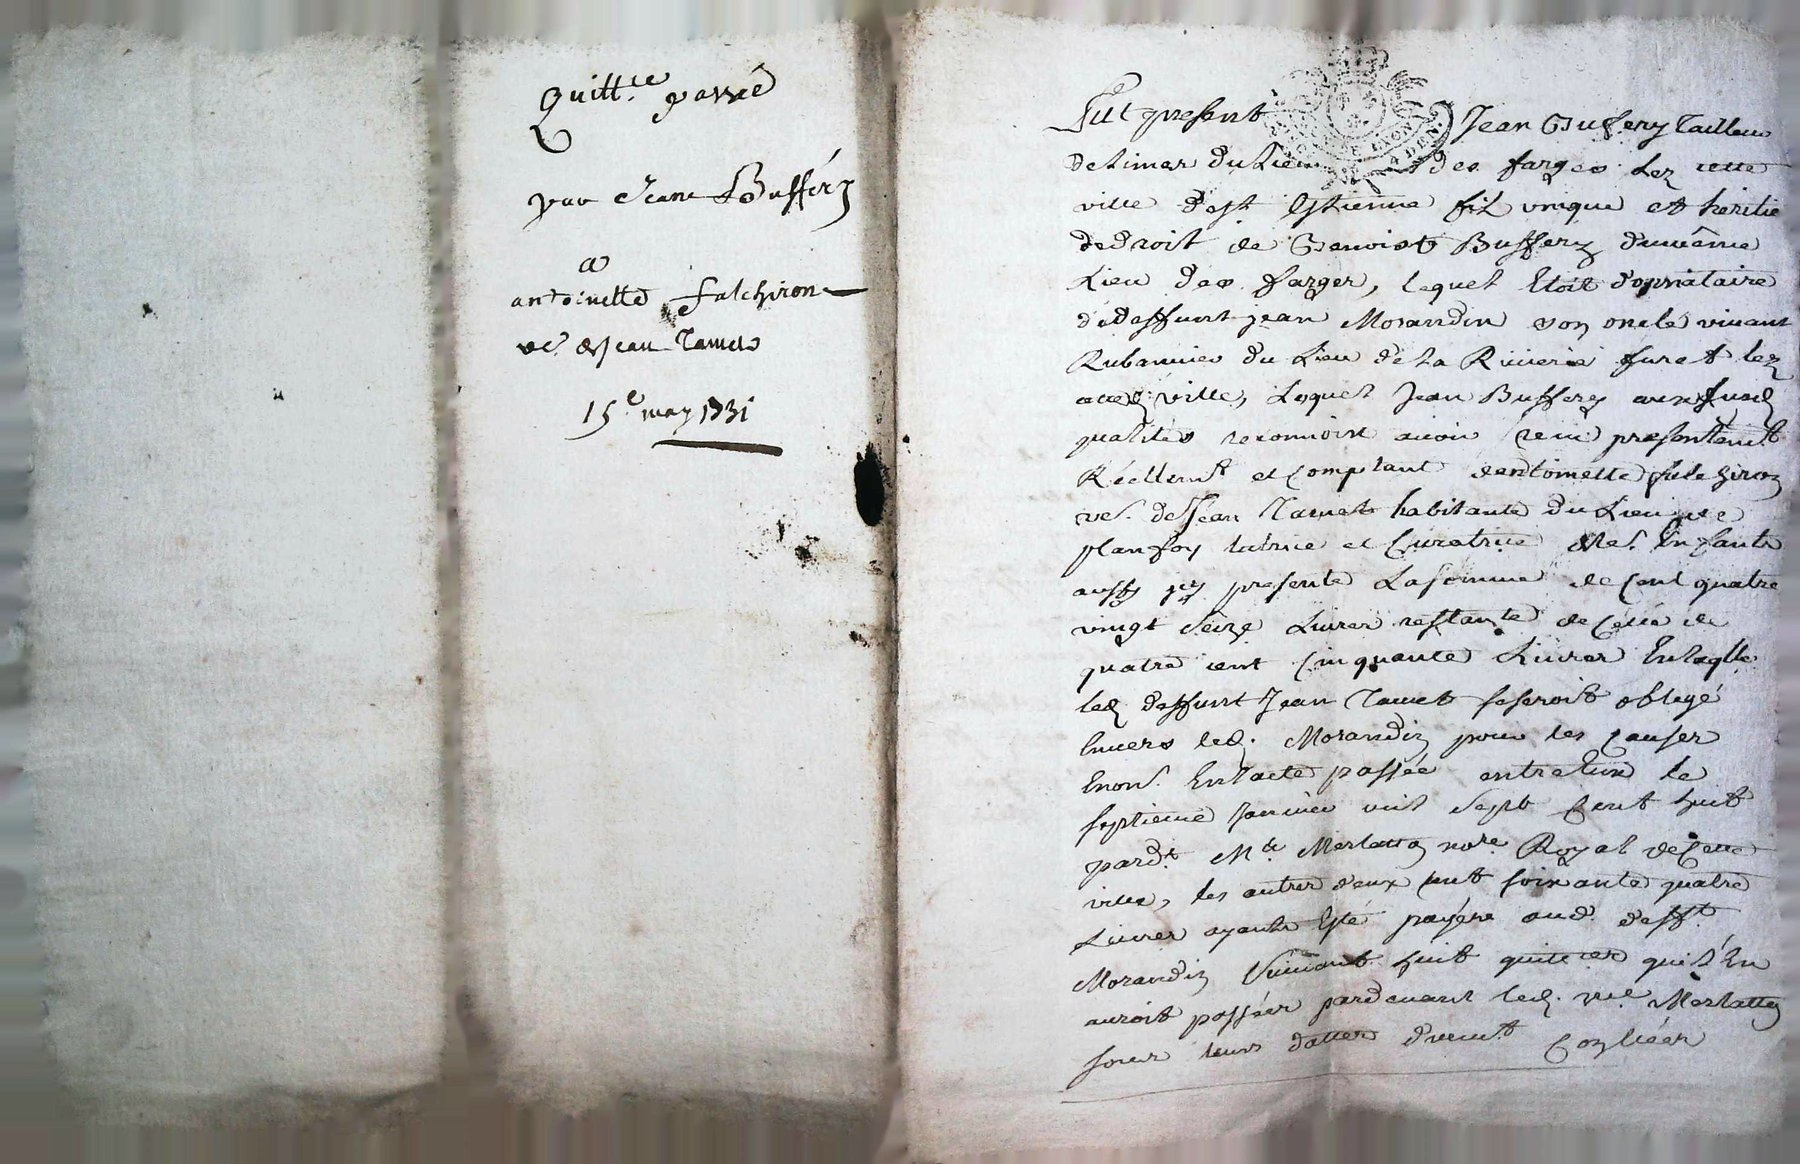 Quitt.ce passé
par Jean Buffery
a
antoinette falchiron
ve. de Jean Tamet
15e may 1731
Fut present Jean Buffery Tailleur
de Limes du Lieu des farges Lez cette
ville d'est Estienne fils unique et heritie
de droit de Benoist Buffery du même
Lieu des farges, lequel Etoit donnataire
de deffunt jean Morandin son oncle vivant
Rubannier du Lieu de la Riviere furet lez
cetted. ville, Lequel Jean Buffery auxsusd.
qualités reconnoist avoir receu presentemt
Réellemt et Comptant dantoinette falchiron
ve. de Jean Tamet habitante du Lieu de
planfoy tutrice et Curatrice de ses Enfants
aussy icy presente La somme de Cent quatre
vingt seize Livres restante de Celle de
quatre cent Cinquante Livres Enlaqlle
led. deffunt Jean Tamet seseroit obligé
Envers led. Morandin pour les Causes
Enon. En lacte passée entre Eux le
septieme Janvier mil sept Cent huit
pardt Me Merlatton nore Royal de Cette
ville, les autres deux cent soixante quatre
Livres ayants Esté payées aud. defft
Morandin suivant huit quittces qu'il En
auroit passées pardevant led. me Merlatton
sous leurs dattes duemt